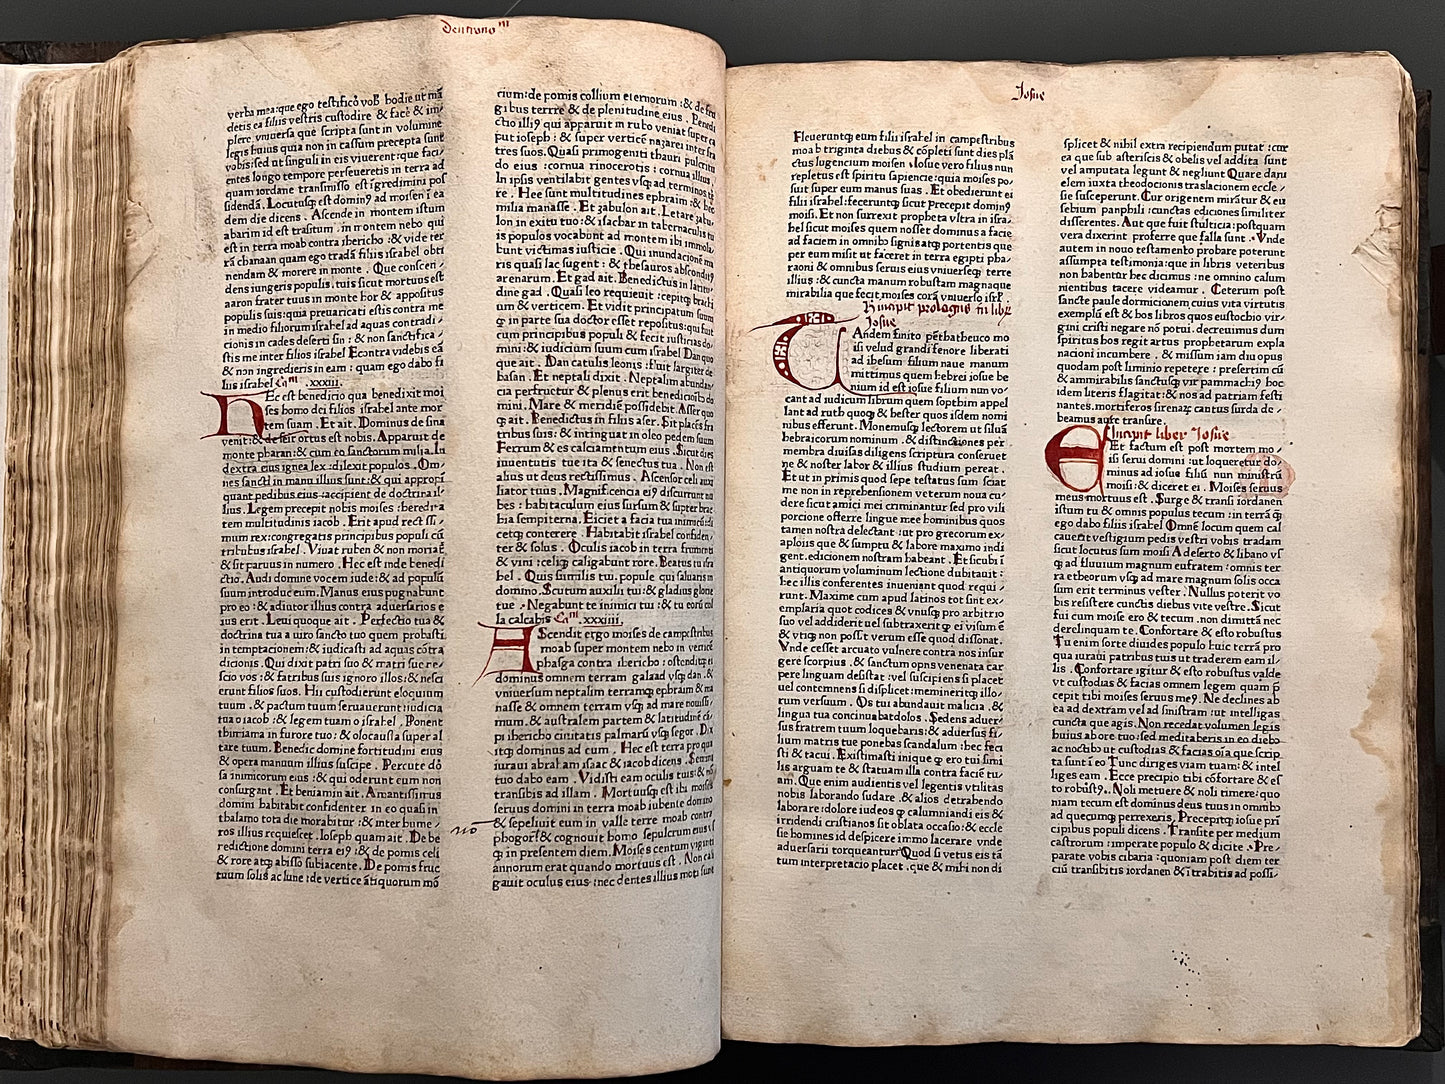 Deutrono m
verba mea: que ego testifico² vob̄ hodie ut mā
detis ea filiis vestris custodire & facē & im
plere, vniuersa que scripta sunt in volumine
legis huius quia non in cassum precepta sunt
vobis: sed ut singuli in eis viuerent: que faci⸗
entes longo tempore perseueretis in terra ad
quam iordane transmisso estis īgredimini pos
sidendā. Locutusq̨ est domin9 ad moisen ī ea
dem die dicens. Ascende in montem istum
abarim id est trāsitum. in montem nebo qui
est in terra moab contra ihericho: & vide ter
rā chanaan quam ego tradā filiis israhel obti
nendam & morere in monte. Que conscen⸗
dens iungeris populis tuis sicut mortuus est
aaron frater tuus in monte hor & appositus
populis suis: quia preuaricati estis contra me
in medio filiorum israhel ad aquas contradi⸗
ctionis in cades deserti sin: & non sanctifica⸗
stis me inter filios israhel Econtra videbis eā
& non ingredieris in eam: quam ego dabo fi
liis israhel Cam. .xxxiii.
HEc est benedictio qua benedixit moi
ses homo dei filios israhel ante mor
tem suam. Et ait. Dominus de sina
venit: & de seir ortus est nobis. Apparuit de
monte pharan: & cum eo sanctorum milia. In
dextra eius ignea lex: dilexit populos. Om⸗
nes sancti in manu illius sunt: & qui appropi
quant pedibus eius accipient de doctrina il⸗
lius. Legem precepit nobis moises: heredita
tem multitudinis iacob. Erit apud rectissi⸗
mum rex: congregatis principibus populi cū
tribubus israhel. Viuat ruben & non moriat̄
& sit paruus in numero. Hec est iude benedi
ctio. Audi domine vocem iude: & ad populū
suum introduc eum. Manus eius pugnabunt
pro eo: & adiutor illius contra aduersarios e
ius erit. Leui quoque ait. Perfectio tua &
doctrina tua a uiro sancto tuo quem probasti
in temptacionem: & iudicasti ad aquas cōtra
dicionis. Qui dixit patri suo & matri sue ne⸗
scio vos: & fratribus suis ignoro illos: & nesci
erunt filios suos. Hii custodierunt eloquium
tuum. & pactum tuum seruauerunt: iudicia
tua o iacob: & legem tuam o israhel. Ponent
thimiama in furore tuo: & olocausta super al
tare tuum. Benedic domine fortitudini eius
& opera manuum illius suscipe. Percute do
sa inimicorum eius: & qui oderunt eum non
consurgant. Et beniamin ait. Amantissimus
domini habitabit confidenter in eo quasi in
thalamo tota die morabitur: & inter hume⸗
ros illius requiescet. Ioseph quam ait. De be
nedictione domini terra ei9: & de pomis celi
& rore atq̨ abisso subiacente. De pomis fruc
tuum solis ac lune: de vertice ātiquorum mō
cium: de pomis collium eternorum: & de fru
gibus terre & de plenitudine eius. Benedi
ctio illi9 qui apparuit in rubo veniat super ca
put ioseph: & super verticē nazarei inter fra
tres suos. Quasi primogeniti thauri pulcritu
do eius: cornua rinocerotis: cornua illius.
In ipsis ventilabit gentes vsq̨ ad terminos ter
re. Hee sunt multitudines ephraim: & hec
milia manasse. Et zabulon ait. Letare zabu⸗
lon in exitu tuo: & isachar in tabernaculis tu
is populos vocabunt ad montem ibi immola⸗
bunt victimas iusticie. Qui inundacionē ma
ris quasi lac sugent: & thesauros absconditos
arenarum. Et gad ait. Benedictus in latitu⸗
dine gad. Quasi leo requieuit: cepitq̨ brachi
um & verticem. Et vidit principatum suum
q̨ in parte sua doctor esset repositus: qui fuit
cum principibus populi & fecit iusticias do⸗
mini: & iudicium suum cum israhel Dan quo
que ait. Dan catulis leonis: fluet largiter de
basan. Et neptali dixit. Neptalim abundan⸗
cia perfructur & plenus erit benedictioīb do
mini. Mare & meridiē possidebit. Asser quo
q̨ ait. Benedictus in filiis aser. Sit placēs fra
tribus suis: & intinguat in oleo pedem suum
Ferrum & es calciamentum eius. Sicut dies
iuuentutis tue ita & senectus tua. Non est
alius ut deus rectissimus. Ascensor celi auxi
liator tuus. Magnificencia ei9 discurrunt nu
bes: habitaculum eius sursum & supter brac
hia sempiterna. Eiciet a facia tua inimicū: di
cetq̨ conterere. Habitabit israhel confiden⸗
ter & solus. Oculis iacob in terra frumenti
& vini: celiq̨ caligabunt rore. Beatus tu isra
hel. Quis similis tui. popule qui saluaris in
domino. Scutum auxilii tui: & gladius glorie
tue. Negabunt te inimici tui: & tu eorū col
la calcabis Cam. .xxxiiii.
AScendit ergo moises de campestribus
moab super montem nebo in verticē
phasga contra ihericho: ostenditq̨ ei
dominus omnem terram galaad vsq̨ dan. &
vniuersum neptalim terramq̨ ephraim & ma
nasse & omnem terram vsq̨ ad mare nouissi⸗
mum. & australem partem & latitudinē cā⸗
pi ihericho ciuitatis palmarū vsq̨ segor. Dix
itq̨ dominus ad eum. Hec est terra pro qua
iuraui abraham isaac & iacob dicens. Semini
tuo dabo eam. Vidisti eam oculis tuis: & nō
transibis ad illam. Mortuusq̨ est ibi moises
seruus domini in terra moab iubente domino
no
& sepeliuit eum in valle terre moab contra
phogor: & cognouit homo sepulcrum eius vs
q̨ in presentem diem. Moises centum viginti
annorum erat quando mortuus est. Non cali
gauit oculus eius: nec dentes illius moti sunt
Iosue
Fleueruntq̨ eum filii israhel in campestribus
moab triginta diebus & cōpleti sunt dies plā
ctus lugencium moisen. Iosue vero filius nun
repletus est spiritu sapiencie: quia moises po⸗
suit super eum manus suas. Et obedierunt ei
filii israhel: feceruntq̨ sicut precepit domin9
moisi. Et non surrexit propheta vltra in isra⸗
hel sicut moises quem nosset dominus a facie
ad faciem in omnib signis atq̨ portentis que
per eum misit ut faceret in terra egipti pha⸗
raoni & omnibus seruis eius vniuerseq̨ terre
illius: & cuncta manum robustam magnaque
mirabilia que fecit moises corā vniuerso isrł.
Incipit prologus in libr
Iosue
TAndem finito pēthatheuco mo
isi velud grandi fenore liberati
ad ihesum filium naue manum
mittimus quem hebrei iosue be
nium id est iosue filium nun vo⸗
cant ad iudicum librum quem sopthim appel
lant ad ruth quoq̨ & hester quos isdem nomi
nibus efferunt. Monemusq̨ lectorem ut siluā
hebraicorum nominum. & distinctiones per
membra diuisas diligens scriptura conseruet
ne & noster labor & illius studium pereat.
Et ut in primis quod sepe testatus sum sciat
me non in reprehensionem veterum noua cu⸗
dere sicut amici mei criminantur sed pro vili
porcione offerre lingue mee hominibus quos
tamen nostra delectant: ut pro grecorum ex⸗
aplois que & sumptu & labore maximo indi
gent. edicionem nostram habeant. Et sicubi ī
antiquorum voluminum lectione dubitauīt:
hec illis conferentes inueniant quod requi⸗
runt. Maxime cum apud latinos tot sint ex⸗
emplaria quot codices & vnusq̨ pro arbitrio
suo vel addiderit uel subtraxerit q̨ ei visum ē
& vtiq̨ non possit verum esse quod dissonat.
Vnde cesset arcuato vulnere contra nos insur
gere scorpius. & sanctum opus venenata car
pere linguam desistat: vel suscipiens si placet
uel contemnens si displicet: memineritq̨ illo⸗
rum versuum. Os tui abundauit malicia. &
lingua tua concinnabat dolos. Sedens aduer⸗
sus fratrem tuum loquebaris: & aduersus fi⸗
lium matris tue ponebas scandalum: hec feci
sti & tacui. Existimasti inique q̨ ero tui simi
lis arguam te & statuam illa contra faciē tu⸗
am. Que enim audientis vel legentis vtilitas
nobis laborando sudare. & alios detrahendo
laborare: dolore iudeos q̨ calumniandi eis &
irridendi cristianos sit oblata occasio: & eccle
sie homines id despicere immo lacerare vnde
aduersarii torqueantur Quod si vetus eis tā
tum interpretacio placet. que & mihi non di
splicet & nihil extra recipiendum putāt: cur
ea que sub asteriscis & obelis vel addita sunt
vel amputata legunt & negliunt Quare dani
elem iuxta theodocionis traslacionem eccle⸗
sie susceperunt. Cur origenem mirātur & eu
sebium panphili: cunctas ediciones similiter
disserentes. Aut que fuit stulticia: postquam
vera dixerint proferre que falsa sunt. Vnde
autem in nouo testamento probare poterunt
assumpta testimonia: que in libris veteribus
non habentur hec dicimus: ne omnino calum
nientibus tacere videamur. Ceterum post
sancte paule dormicionem cuius vita virtutis
exemplū est & hos libros quos eustochio vir⸗
gini cristi negare nō potui. decreuimus dum
spiritus hos regit artus prophetarum expla
nacioni incumbere. & missum iam diu opus
quodam post liminio repetere: presertim cū
& ammirabilis sanctusq̨ vir pammachi9 hoc
idem literis flagitat: & nos ad patriam festi
nantes. mortiferos sirenaꝝ cantus surda de⸗
beamus aure transire.
Incipit liber Iosue
ET factum est post mortem mo⸗
isi serui domini: ut loqueretur do⸗
minus ad iosue filiū nun ministrū
moisi: & diceret ei. Moises seruus
meus mortuus est. Surge & transi iordanem
istum tu & omnis populus tecum: in terrā q̄
ego dabo filiis israhel Omnē locum quem cal
cauerit vestigium pedis vestri vobis tradam
sicut locutus sum moisi A deserto & libano vs
q̨ ad fluuium magnum eufratem: omnis ter
ra etheorum vsq̨ ad mare magnum solis occa
sum erit terminus vester. Nullus poterit vo
bis resistere cunctis diebus vite vestre. Sicut
fui cum moise ero & tecum. non dimittā nec
derelinquam te. Confortare & esto robustus
Tu enim sorte diuides populo huic terrā pro
qua iuraui patribus tuis ut traderem eam il⸗
lis. Confortare igitur & esto robustus valde
vt custodias & facias omnem legem quam p̄
cepit tibi moises seruus me9. Ne declines ab
ea ad dextram vel ad sinistram: ut intelligas
cuncta que agis. Non recedat volumen legis
huius ab ore tuo: sed meditaberis in eo diebo
ac noctibo ut custodias & facias oīa que scrip
ta sunt ī eo Tunc diriges viam tuam: & intel
liges eam. Ecce precipio tibi cōfortare & es
to robust9. Noli metuere & noli timere: quo
niam tecum est dominus deus tuus in omnibo
ad quecumq̨ perrexeris. Precepitq̨ iosue prī
cipibus populi dicens. Transite per medium
castrorum: imperate populo & dicite. Pre⸗
parate vobis cibaria: quoniam post diem ter
ciū transibitis iordanen & ītrabitis ad possi⸗